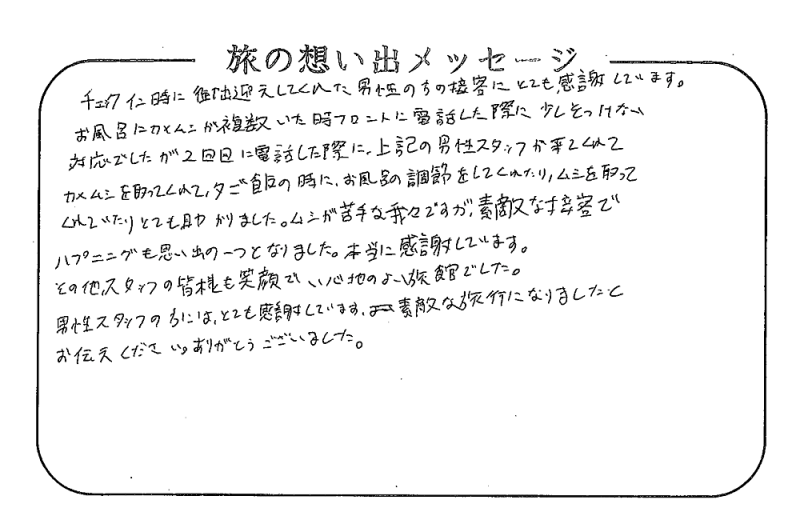 旅の想い出メッセージ
チェックイン時に御出迎えしてくれた男性の方の接客にとても感謝しています。
お風呂にカメムシが複数いた時フロントに電話した際に少しそっけない
対応でしたが2回目に電話した際に、上記の男性スタッフが来てくれて
カメムシを取ってくれて、夕ご飯の時に、お風呂の調節をしてくれたり、ムシを取って
くれていたりとても助かりました。ムシが苦手な我々ですが、素敵な接客で
ハプニングも思い出の一つとなりました。本当に感謝しています。
その他、スタッフの皆様も笑顔でいい心地のよい旅館でした。
男性スタッフの方には、とても感謝しています、素敵な旅行になりましたと
お伝えください。ありがとうございました。